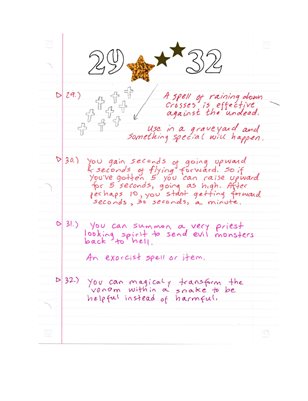 29 32
29.) A spell of raining down
crosses is effective
against the undead.
Use in a graveyard and
something special will happen.
30.) You gain seconds of going upward
& seconds of flying forward. So if
you've gotten 5 you can raise upward
for 5 seconds, going as high. After
perhaps 10, you start getting forward
seconds, 30 seconds, a minute.
31.) You can summon a very priest
looking spirit to send evil monsters
back to hell.
An exorcist spell or item.
32.) You can magicaly transform the
venom within a snake to be
helpful instead of harmful.